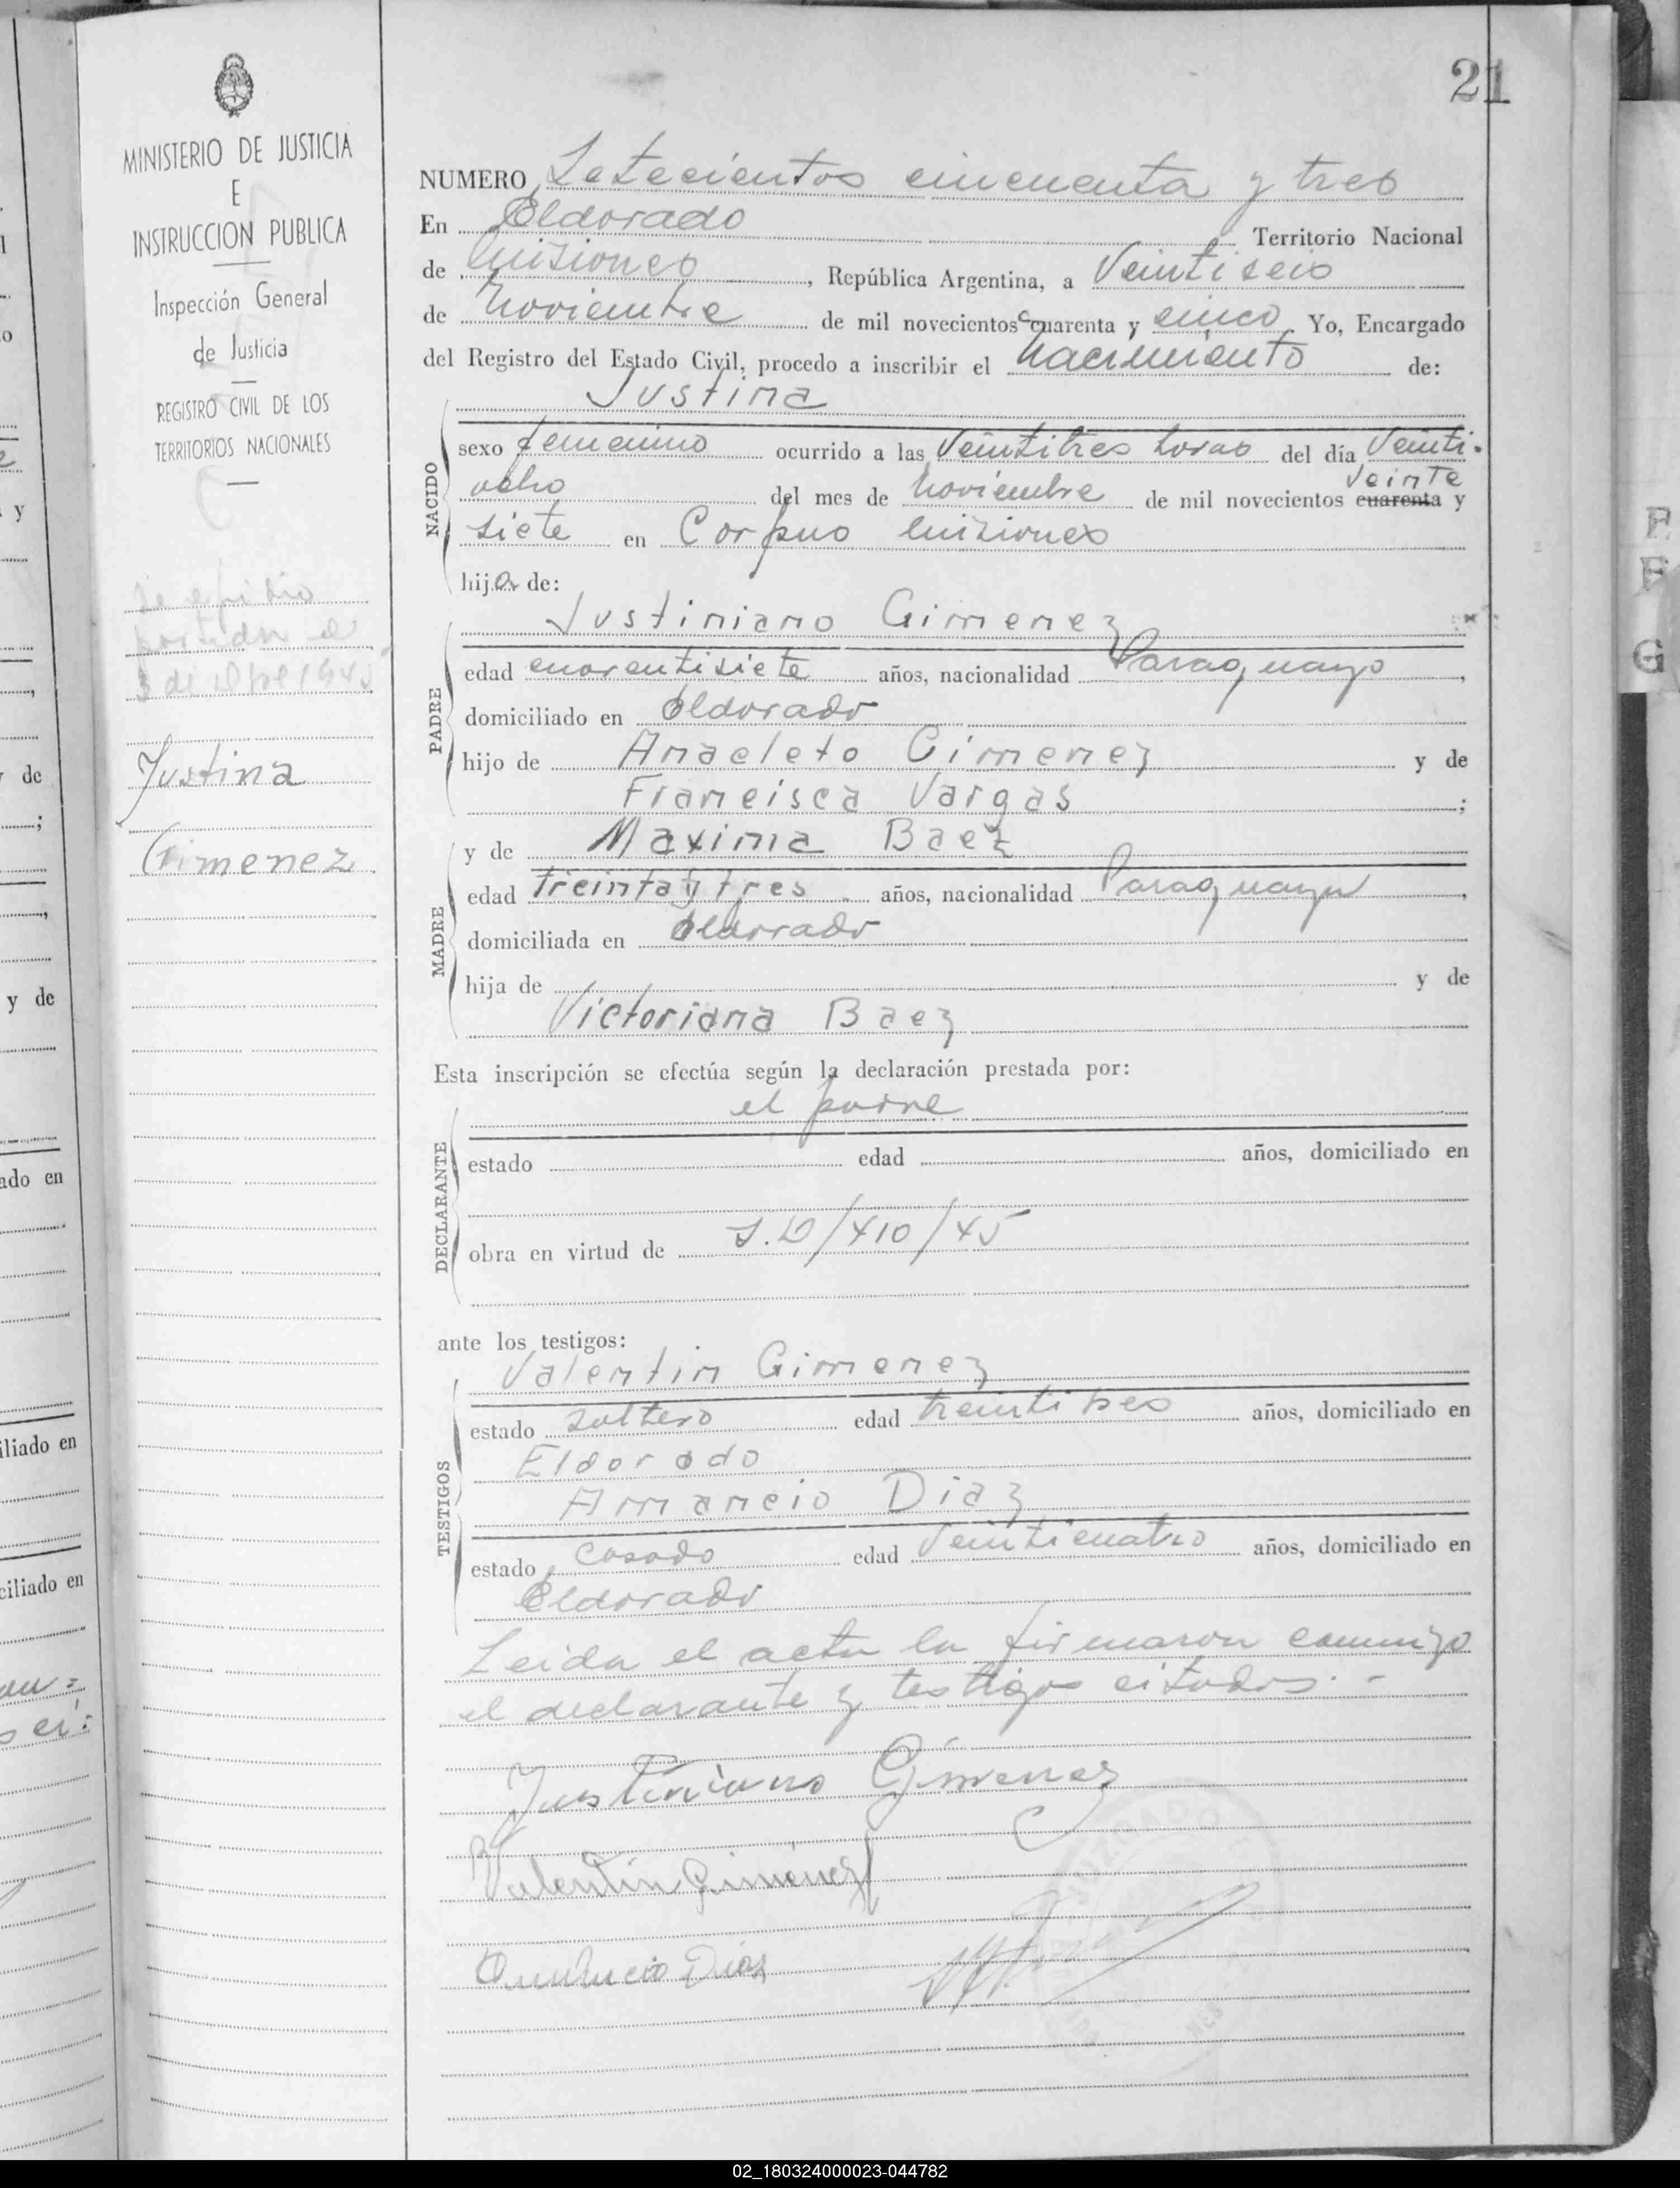 21
MINISTERIO DE JUSTICIA
E
INSTRUCCION PUBLICA
Inspección General
de Justicia
REGISTRO CIVIL DE LOS
TERRITORIOS NACIONALES
3 de
Justina
Gimenez
NUMERO Setecientos cincuenta y tres
En Eldorado Territorio Nacional
de Misiones, República Argentina, a Veintiseis
de noviembre de mil novecientos cuarenta y cinco. Yo, Encargado
del Registro del Estado Civil, procedo a inscribir el nacimiento de:
Justina
NACIDO
sexo femenino ocurrido a las Veintitres horas del día Veinti-
veinte
ocho del mes de noviembre de mil novecientos cuarenta y
siete en Corpus Misiones
hija de:
Justiniano Gimenez
PADRE
edad cuarentisiete años, nacionalidad Paraguayo,
domiciliado en Eldorado
hijo de Anacleto Gimenez y de
Francisca Vargas;
y de Maxima Baez
MADRE
edad treinta y tres años, nacionalidad Paraguaya,
domiciliada en Eldorado
hija de y de
Victoriana Baez
Esta inscripción se efectúa según la declaración prestada por:
el padre
DECLARANTE
estado edad años, domiciliado en
obra en virtud de J.D/410/45
ante los testigos:
Valentin Gimenez
TESTIGOS
estado soltero edad treintitres años, domiciliado en
Eldorado
Amancio Diaz
estado casado edad Veinticuatro años, domiciliado en
Eldorado
Leida el acta la firmaron conmigo
el declarante y testigos citados. -
Justiniano Gimenez
Valentin Gimenez
Amancio Dias
02_180324000023-044782